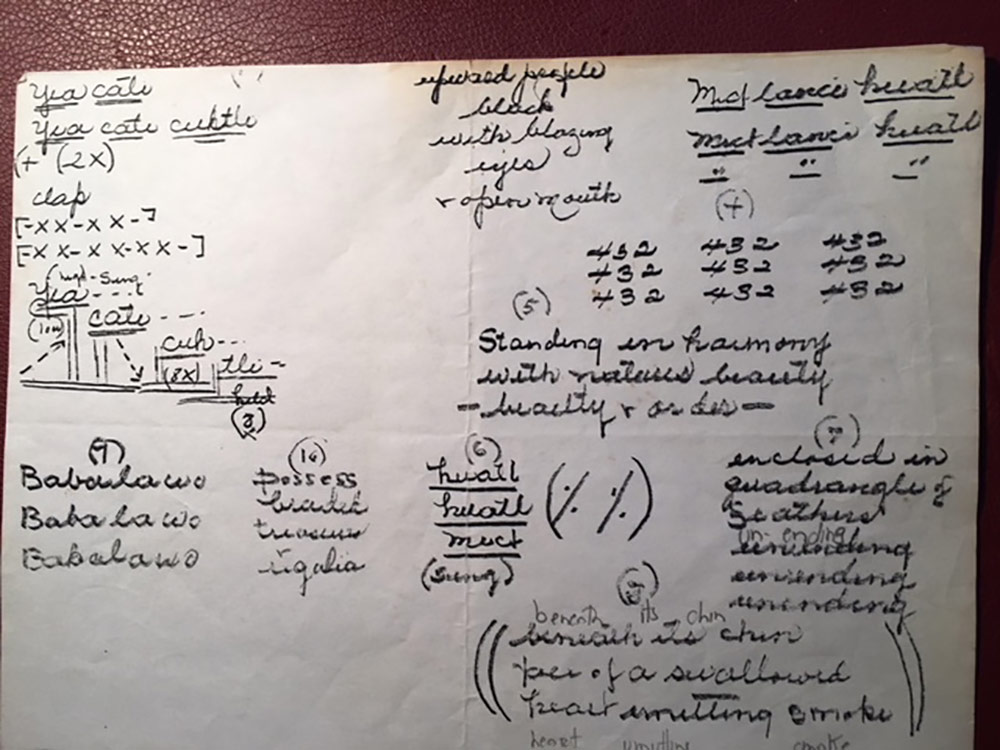 Yia cate
Yia cate cuhtli
(+ (2X)
clap
[-XX-XX-]
[-XX-XX-XX-]
Yia - - -
(10x)
cate - - -
cuh - - -
(8X)
tli - -
held
(8)
people
black
with blazing
eyes
+ open mouth
Mictlanci huatl
Mictlanci huatl
(4)
432 432 432
432 432 432
432 432 432
(5)
Standing in harmony
with natures beauty
- beauty & order -
(9)
Babalawo
Babalawo
Babalawo
(10)
possess
treasures
regalia
(6)
huatl
huatl
mict
(sung)
(⁒ ⁒)
(7)
enclosed in
quadrangle of
feathers
un-ending
unending
unending
unending
(8)
beneath its chin
((beneath its chin
of a swallowed
heart emitting smoke))
heart emitting smoke